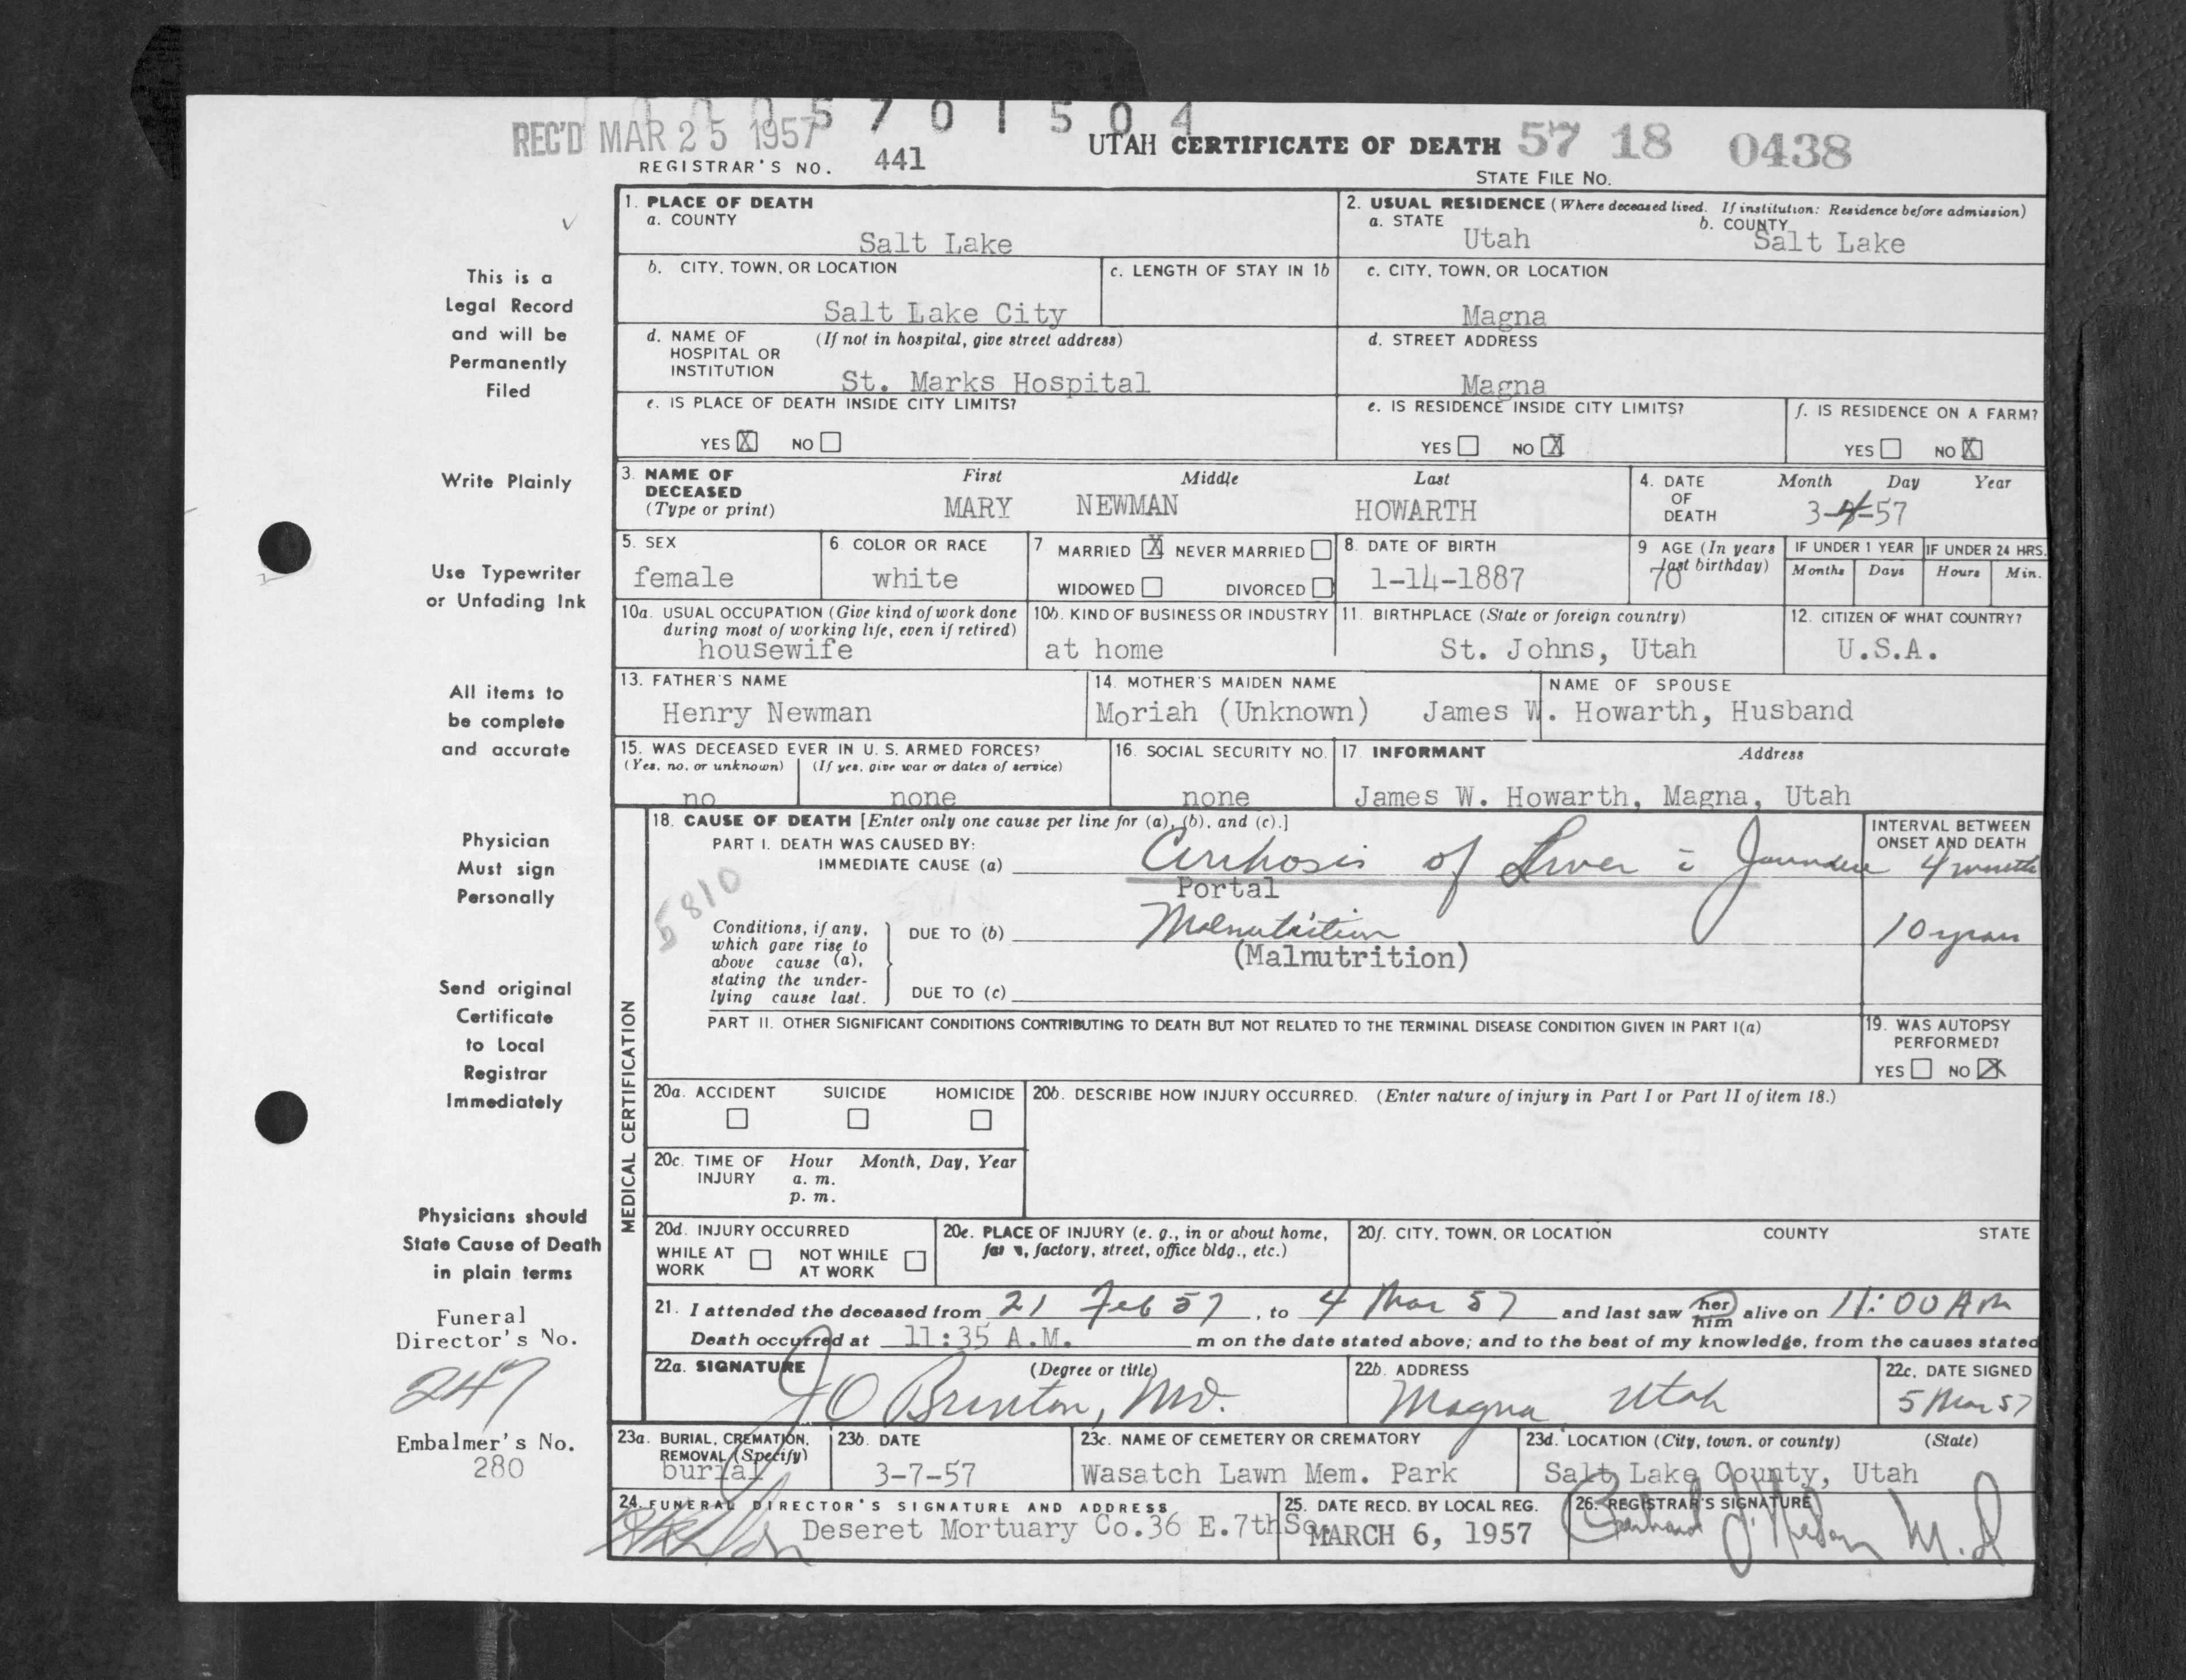 1005701504
REC'D MAR 25 1957
UTAH CERTIFICATE OF DEATH 57 18 0438
REGISTRAR'S NO. 441
STATE FILE NO.
This is a
Legal Record
and will be
Permanently
Filed
Write Plainly
Use Typewriter
or Unfading Ink
All items to
be complete
and accurate
Physician
Must sign
Personally
Send original
Certificate
to Local
Registrar
Immediately
Physicians should
State Cause of Death
in plain terms
Funeral
Director's No.
247
Embalmer's No.
280
1. PLACE OF DEATH
a. COUNTY
Salt Lake
2. USUAL RESIDENCE (Where deceased lived. If institution: Residence before admission)
a. STATE Utah b. COUNTY Salt Lake
b. CITY, TOWN, OR LOCATION
Salt Lake City
c. LENGTH OF STAY IN 1b
c. CITY, TOWN, OR LOCATION
Magna
d. NAME OF HOSPITAL OR INSTITUTION (If not in hospital, give street address)
St. Marks Hospital
d. STREET ADDRESS
Magna
e. IS PLACE OF DEATH INSIDE CITY LIMITS?
YES X NO
e. IS RESIDENCE INSIDE CITY LIMITS?
YES NO X
f. IS RESIDENCE ON A FARM?
YES NO X
3. NAME OF DECEASED (Type or print)
First Middle Last
MARY NEWMAN HOWARTH
4. DATE OF DEATH Month Day Year
3-4-57
5. SEX
female
6. COLOR OR RACE
white
7. MARRIED X NEVER MARRIED
WIDOWED DIVORCED
8. DATE OF BIRTH
1-14-1887
9 AGE (In years last birthday)
70
IF UNDER 1 YEAR IF UNDER 24 HRS.
Months Days Hours Min.
10a. USUAL OCCUPATION (Give kind of work done during most of working life, even if retired)
housewife
10b. KIND OF BUSINESS OR INDUSTRY
at home
11. BIRTHPLACE (State or foreign country)
St. Johns, Utah
12. CITIZEN OF WHAT COUNTRY?
U.S.A.
13. FATHER'S NAME
Henry Newman
14. MOTHER'S MAIDEN NAME
Moriah (Unknown)
NAME OF SPOUSE
James W. Howarth, Husband
15. WAS DECEASED EVER IN U. S. ARMED FORCES?
(Yes, no, or unknown) (If yes, give war or dates of service)
no none
16. SOCIAL SECURITY NO.
none
17. INFORMANT Address
James W. Howarth, Magna, Utah
MEDICAL CERTIFICATION
18. CAUSE OF DEATH [Enter only one cause per line for (a), (b), and (c).]
PART I. DEATH WAS CAUSED BY:
IMMEDIATE CAUSE (a) Cirrhosis of Liver c̄ Jaundice
Portal
INTERVAL BETWEEN ONSET AND DEATH
4 months
5810
Conditions, if any, which gave rise to above cause (a), stating the underlying cause last.
DUE TO (b) Malnutrition
(Malnutrition)
10 years
DUE TO (c)
PART II. OTHER SIGNIFICANT CONDITIONS CONTRIBUTING TO DEATH BUT NOT RELATED TO THE TERMINAL DISEASE CONDITION GIVEN IN PART I(a)
19. WAS AUTOPSY PERFORMED?
YES NO X
20a. ACCIDENT SUICIDE HOMICIDE
20b. DESCRIBE HOW INJURY OCCURRED. (Enter nature of injury in Part I or Part II of item 18.)
20c. TIME OF INJURY Hour Month, Day, Year
a. m.
p. m.
20d. INJURY OCCURRED
WHILE AT WORK NOT WHILE AT WORK
20e. PLACE OF INJURY (e. g., in or about home, farm, factory, street, office bldg., etc.)
20f. CITY, TOWN, OR LOCATION COUNTY STATE
21. I attended the deceased from 21 Feb 57, to 4 Mar 57 and last saw her him alive on 11:00 AM
Death occurred at 11:35 A.M. m on the date stated above; and to the best of my knowledge, from the causes stated
22a. SIGNATURE (Degree or title)
J O Brinton, MD.
22b. ADDRESS
Magna Utah
22c. DATE SIGNED
5 Mar 57
23a. BURIAL, CREMATION, REMOVAL (Specify)
burial
23b. DATE
3-7-57
23c. NAME OF CEMETERY OR CREMATORY
Wasatch Lawn Mem. Park
23d. LOCATION (City, town, or county) (State)
Salt Lake County, Utah
24. FUNERAL DIRECTOR'S SIGNATURE AND ADDRESS
Deseret Mortuary Co. 36 E. 7th So.
25. DATE RECD. BY LOCAL REG.
MARCH 6, 1957
26. REGISTRAR'S SIGNATURE
M.D